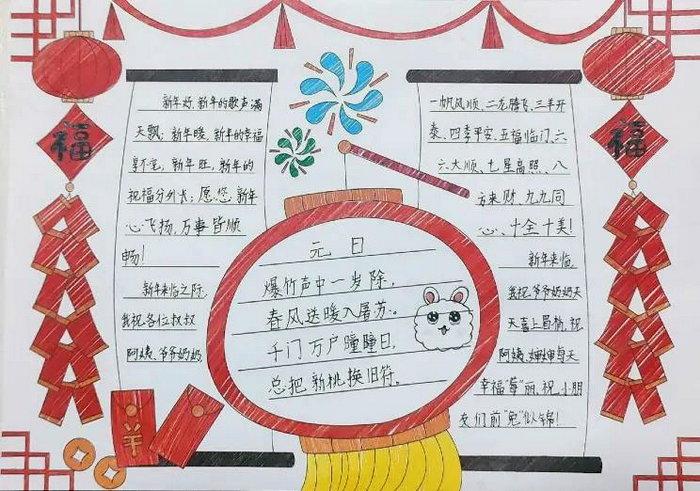 福
新年好,新年的歌声满
天飘;新年暖,新年的幸福
享不完,新年旺,新年的
祝福分外长;愿您,新年
心飞扬,万事皆顺
畅!
新年来临之际,
我祝各位叔叔
阿姨、爷爷奶奶
元日
爆竹声中一岁除,
春风送暖入屠苏。
千门万户瞳瞳日,
总把新桃换旧符。
一帆风顺、二龙腾飞、三羊开
泰、四季平安、五福临门、六
六大顺、七星高照、八
方来财、九九同
心、十全十美!
新年来临,
我祝爷爷奶奶天
天喜上眉梢,祝
阿姨、婶婶每天
幸福"莓"丽,祝小朋
友们前"兔"似锦!
福